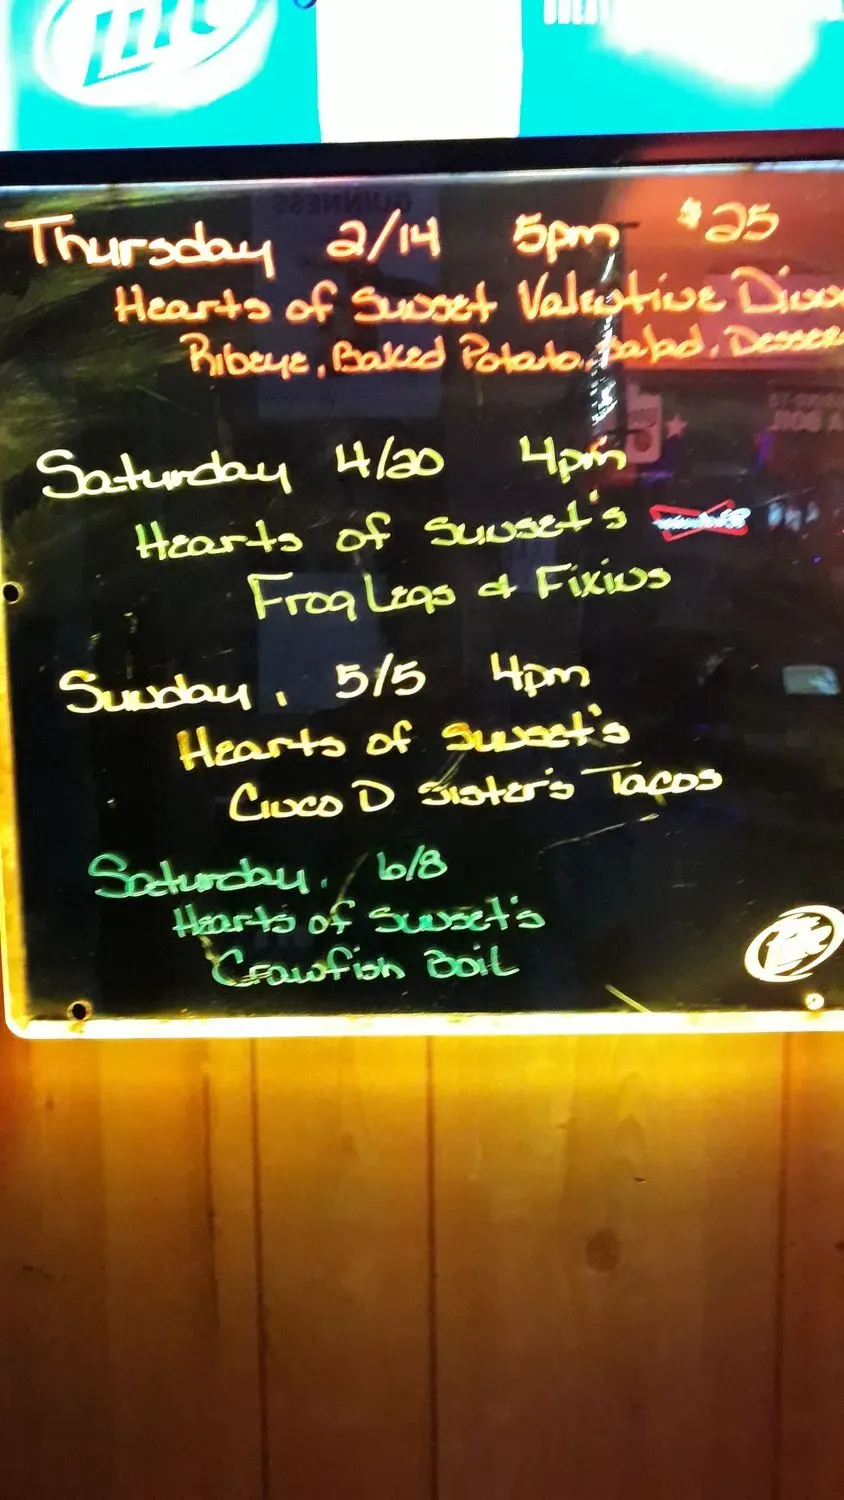 Lite
Thursday 2/14 5pm $25
Hearts of Sunset Valentine Dinn
Ribeye, Baked Potato, Salad, Desser
Saturday 4/20 4pm
Hearts of Sunset's
Frog Legs & Fixins
Sunday, 5/5 4pm
Hearts of Sunset's
Cinco D Sister's Tacos
Saturday, 6/8
Hearts of Sunset's
Crawfish Boil
Lite
GUINNESS